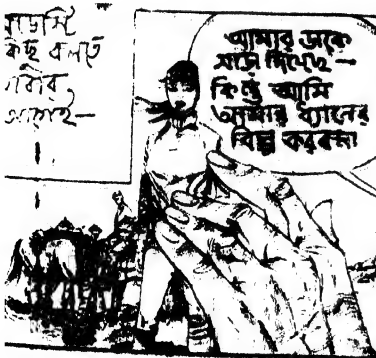 কিছু বলতে
আগেই—
আমার ডাকে
সাড়া দিয়েছে—
কিন্তু আমি
তোমার ধ্যানের
বিঘ্ন করবনা